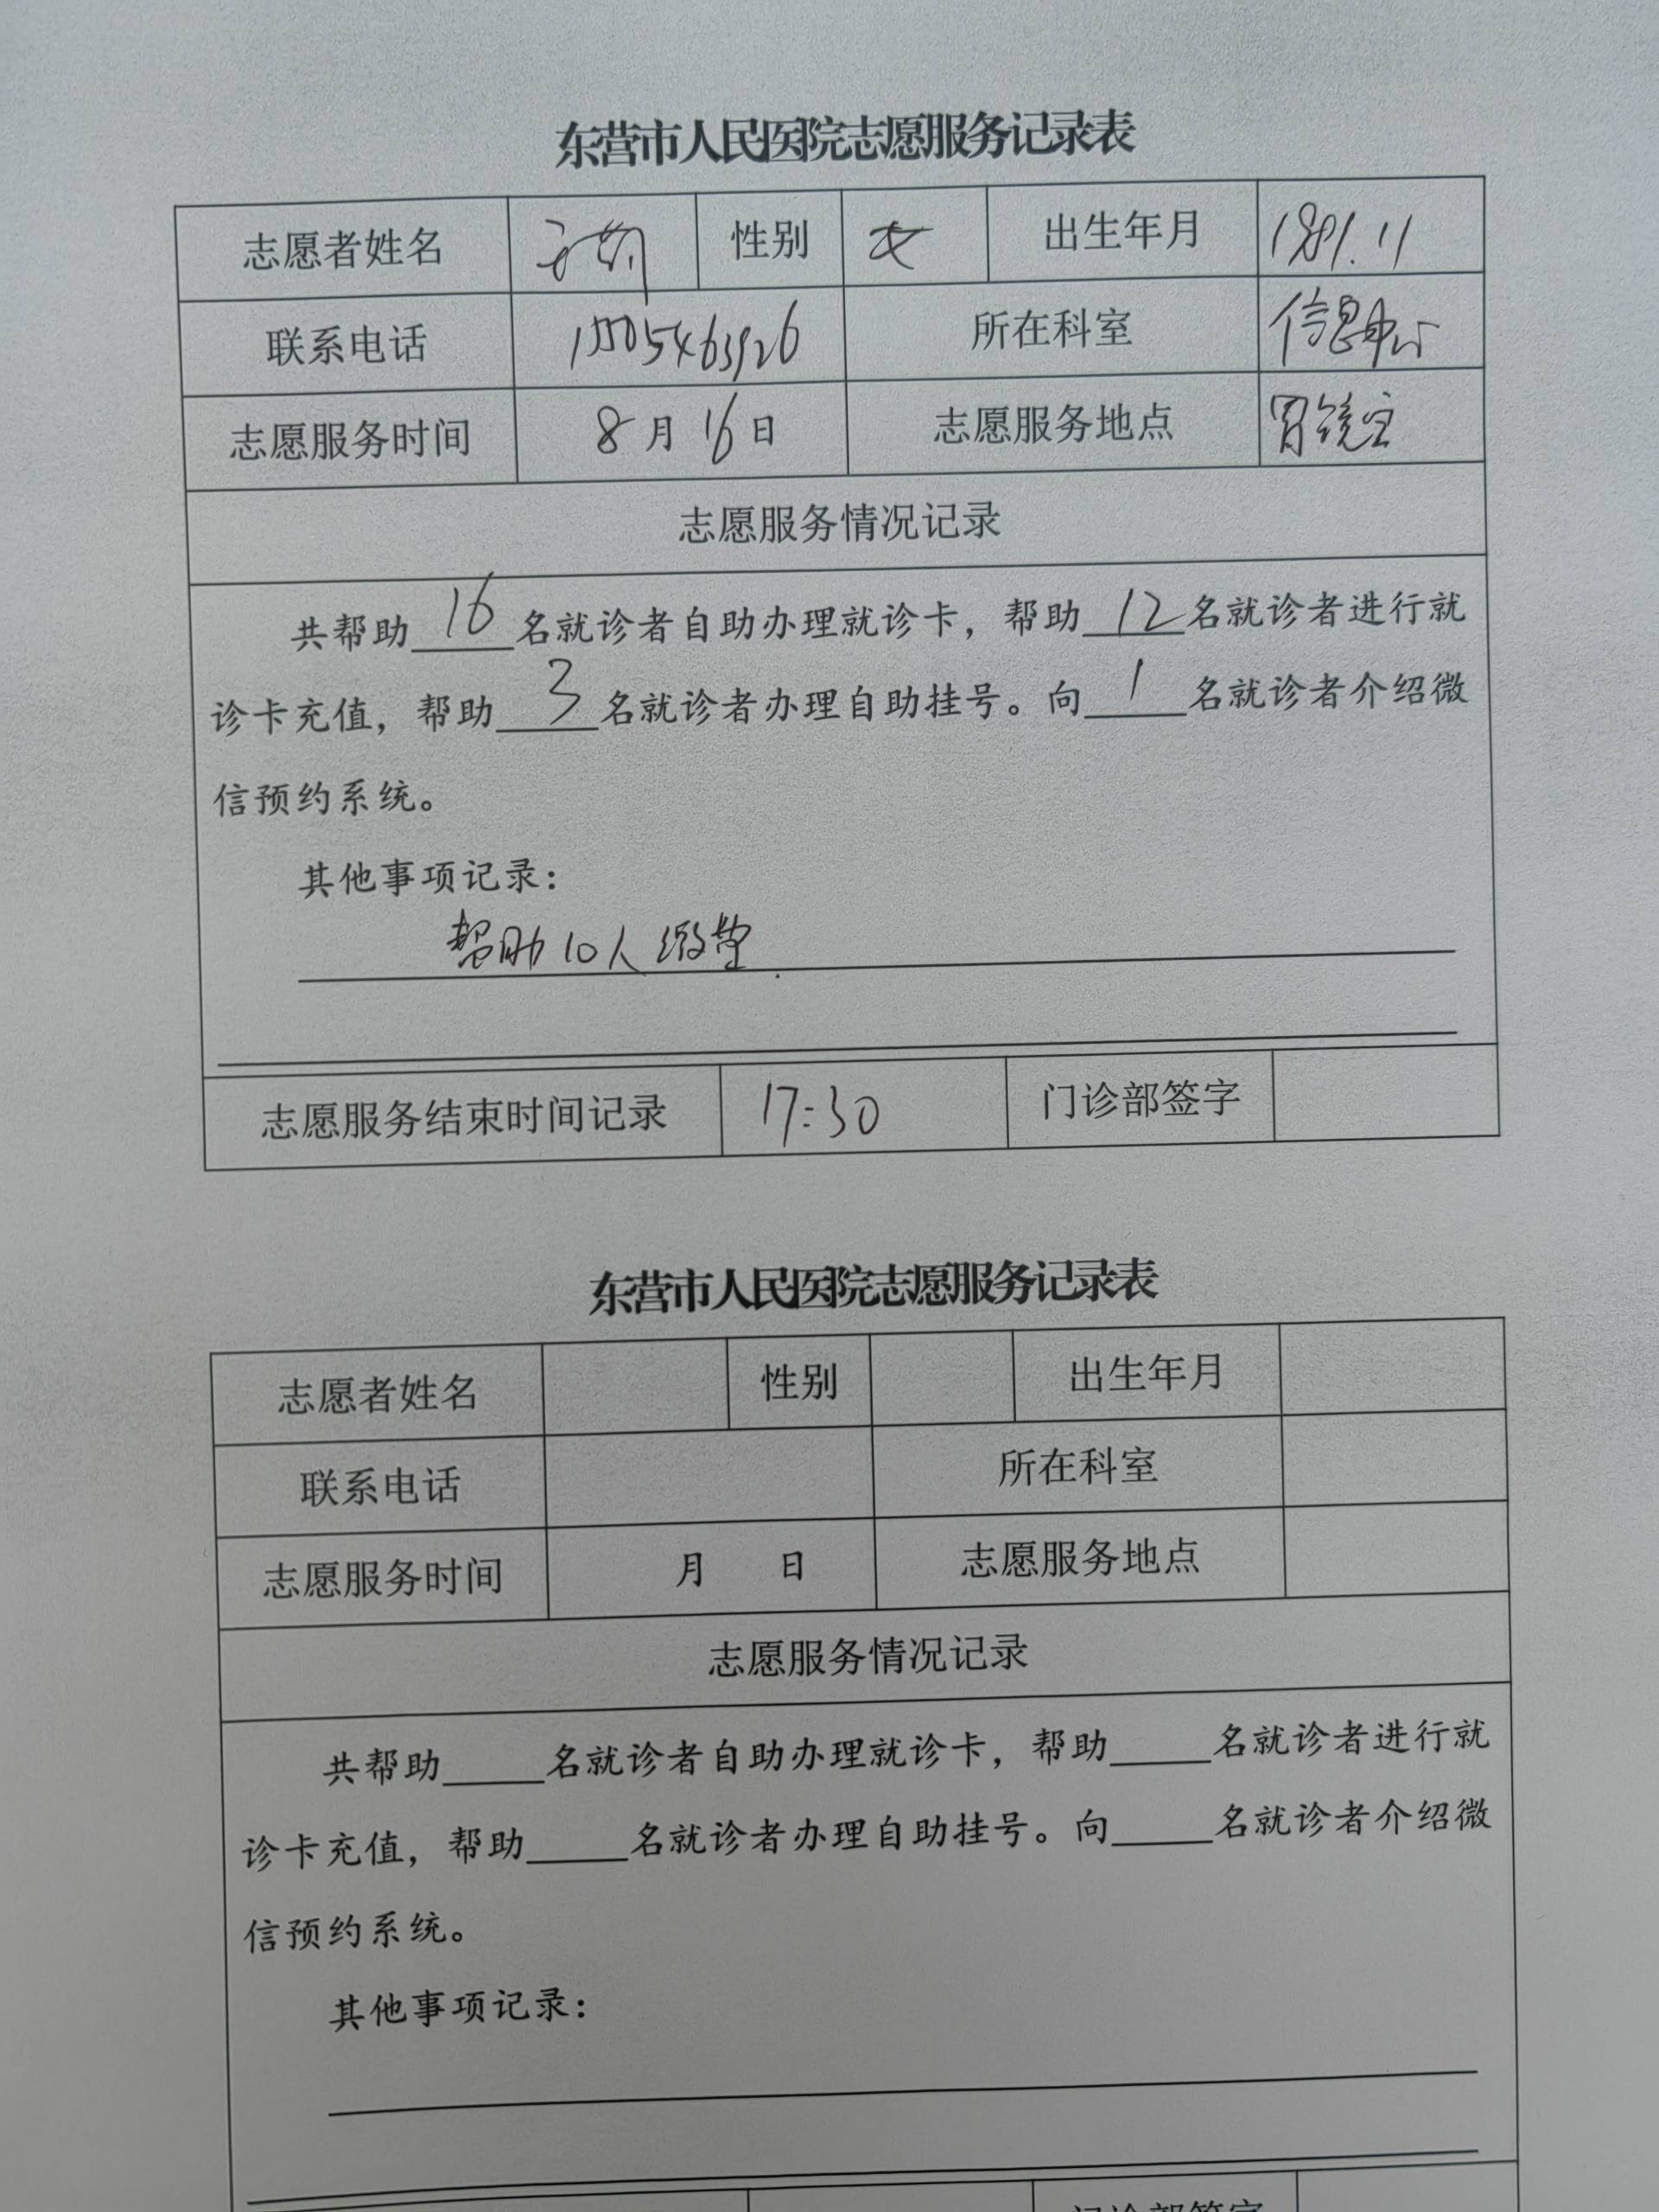 东营市人民医院志愿服务记录表
志愿者姓名 性别 女 出生年月 1981.11
联系电话 所在科室 信息中心
志愿服务时间 8月16日 志愿服务地点 胃镜室
志愿服务情况记录
共帮助16名就诊者自助办理就诊卡，帮助12名就诊者进行就
诊卡充值，帮助3名就诊者办理自助挂号。向1名就诊者介绍微
信预约系统。
其他事项记录：
帮助10人缴费.
志愿服务结束时间记录 17:30 门诊部签字
东营市人民医院志愿服务记录表
志愿者姓名 性别 出生年月
联系电话 所在科室
志愿服务时间 月 日 志愿服务地点
志愿服务情况记录
共帮助_____名就诊者自助办理就诊卡，帮助_____名就诊者进行就
诊卡充值，帮助_____名就诊者办理自助挂号。向_____名就诊者介绍微
信预约系统。
其他事项记录：
门诊部签字